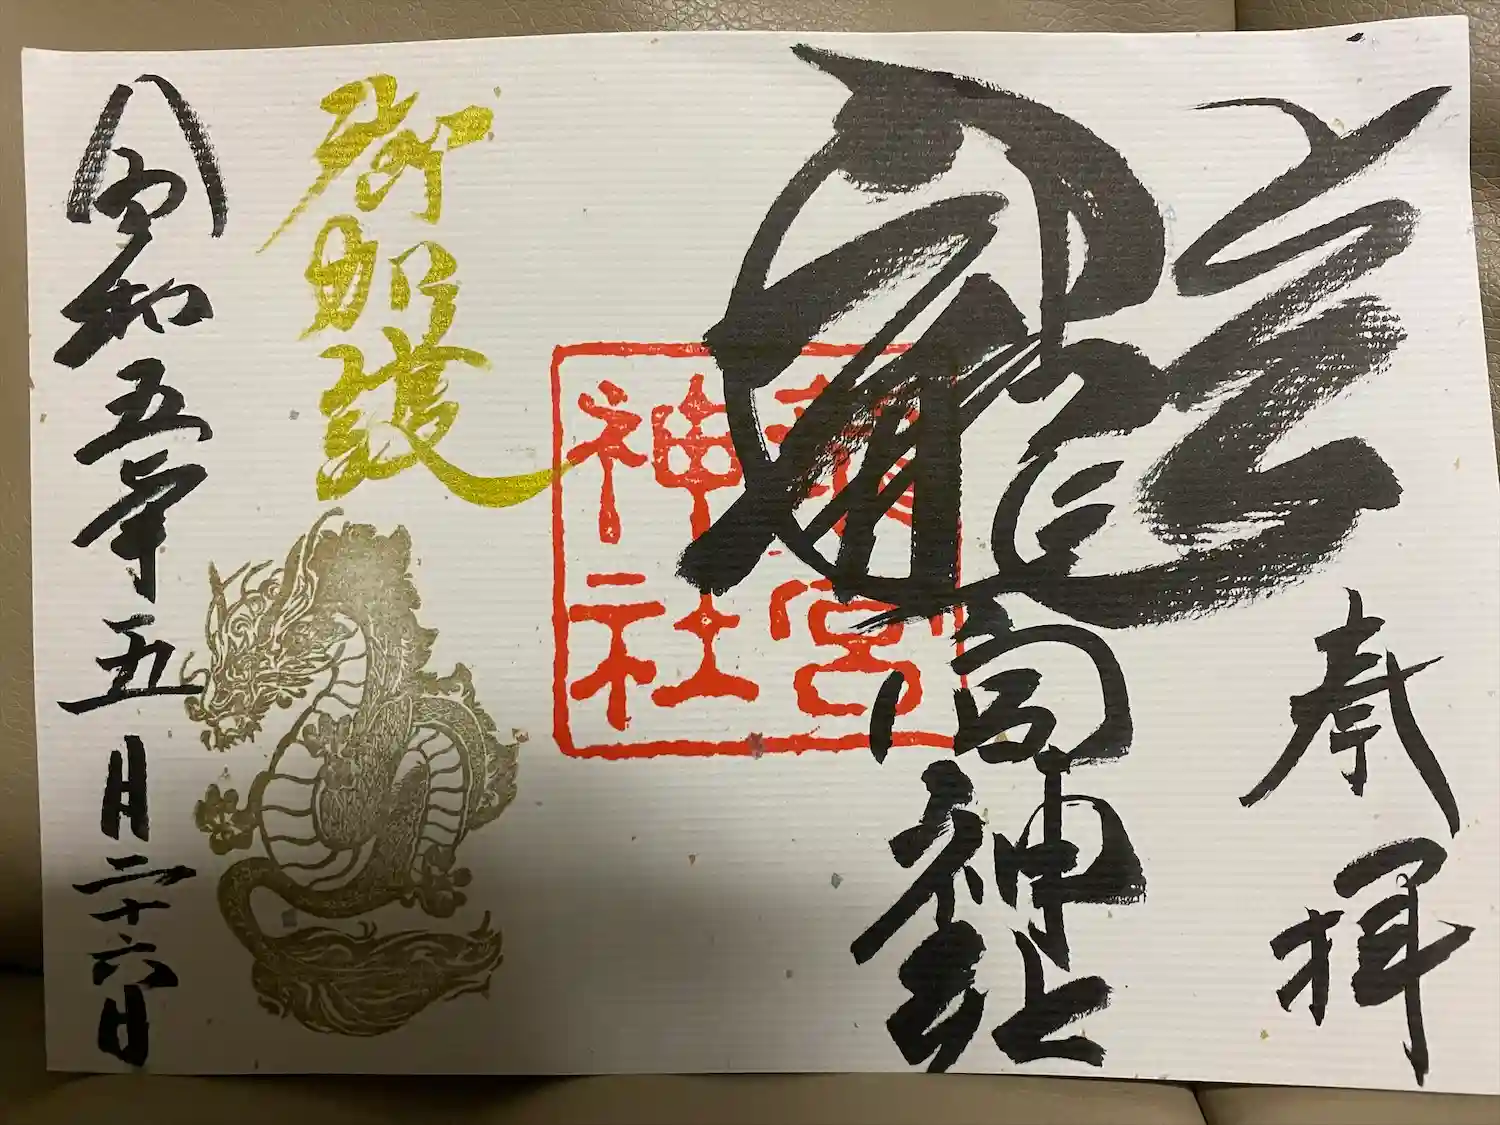 奉拝
龍宮神社
龍宮
神社
御加護
令和五年五月二十六日